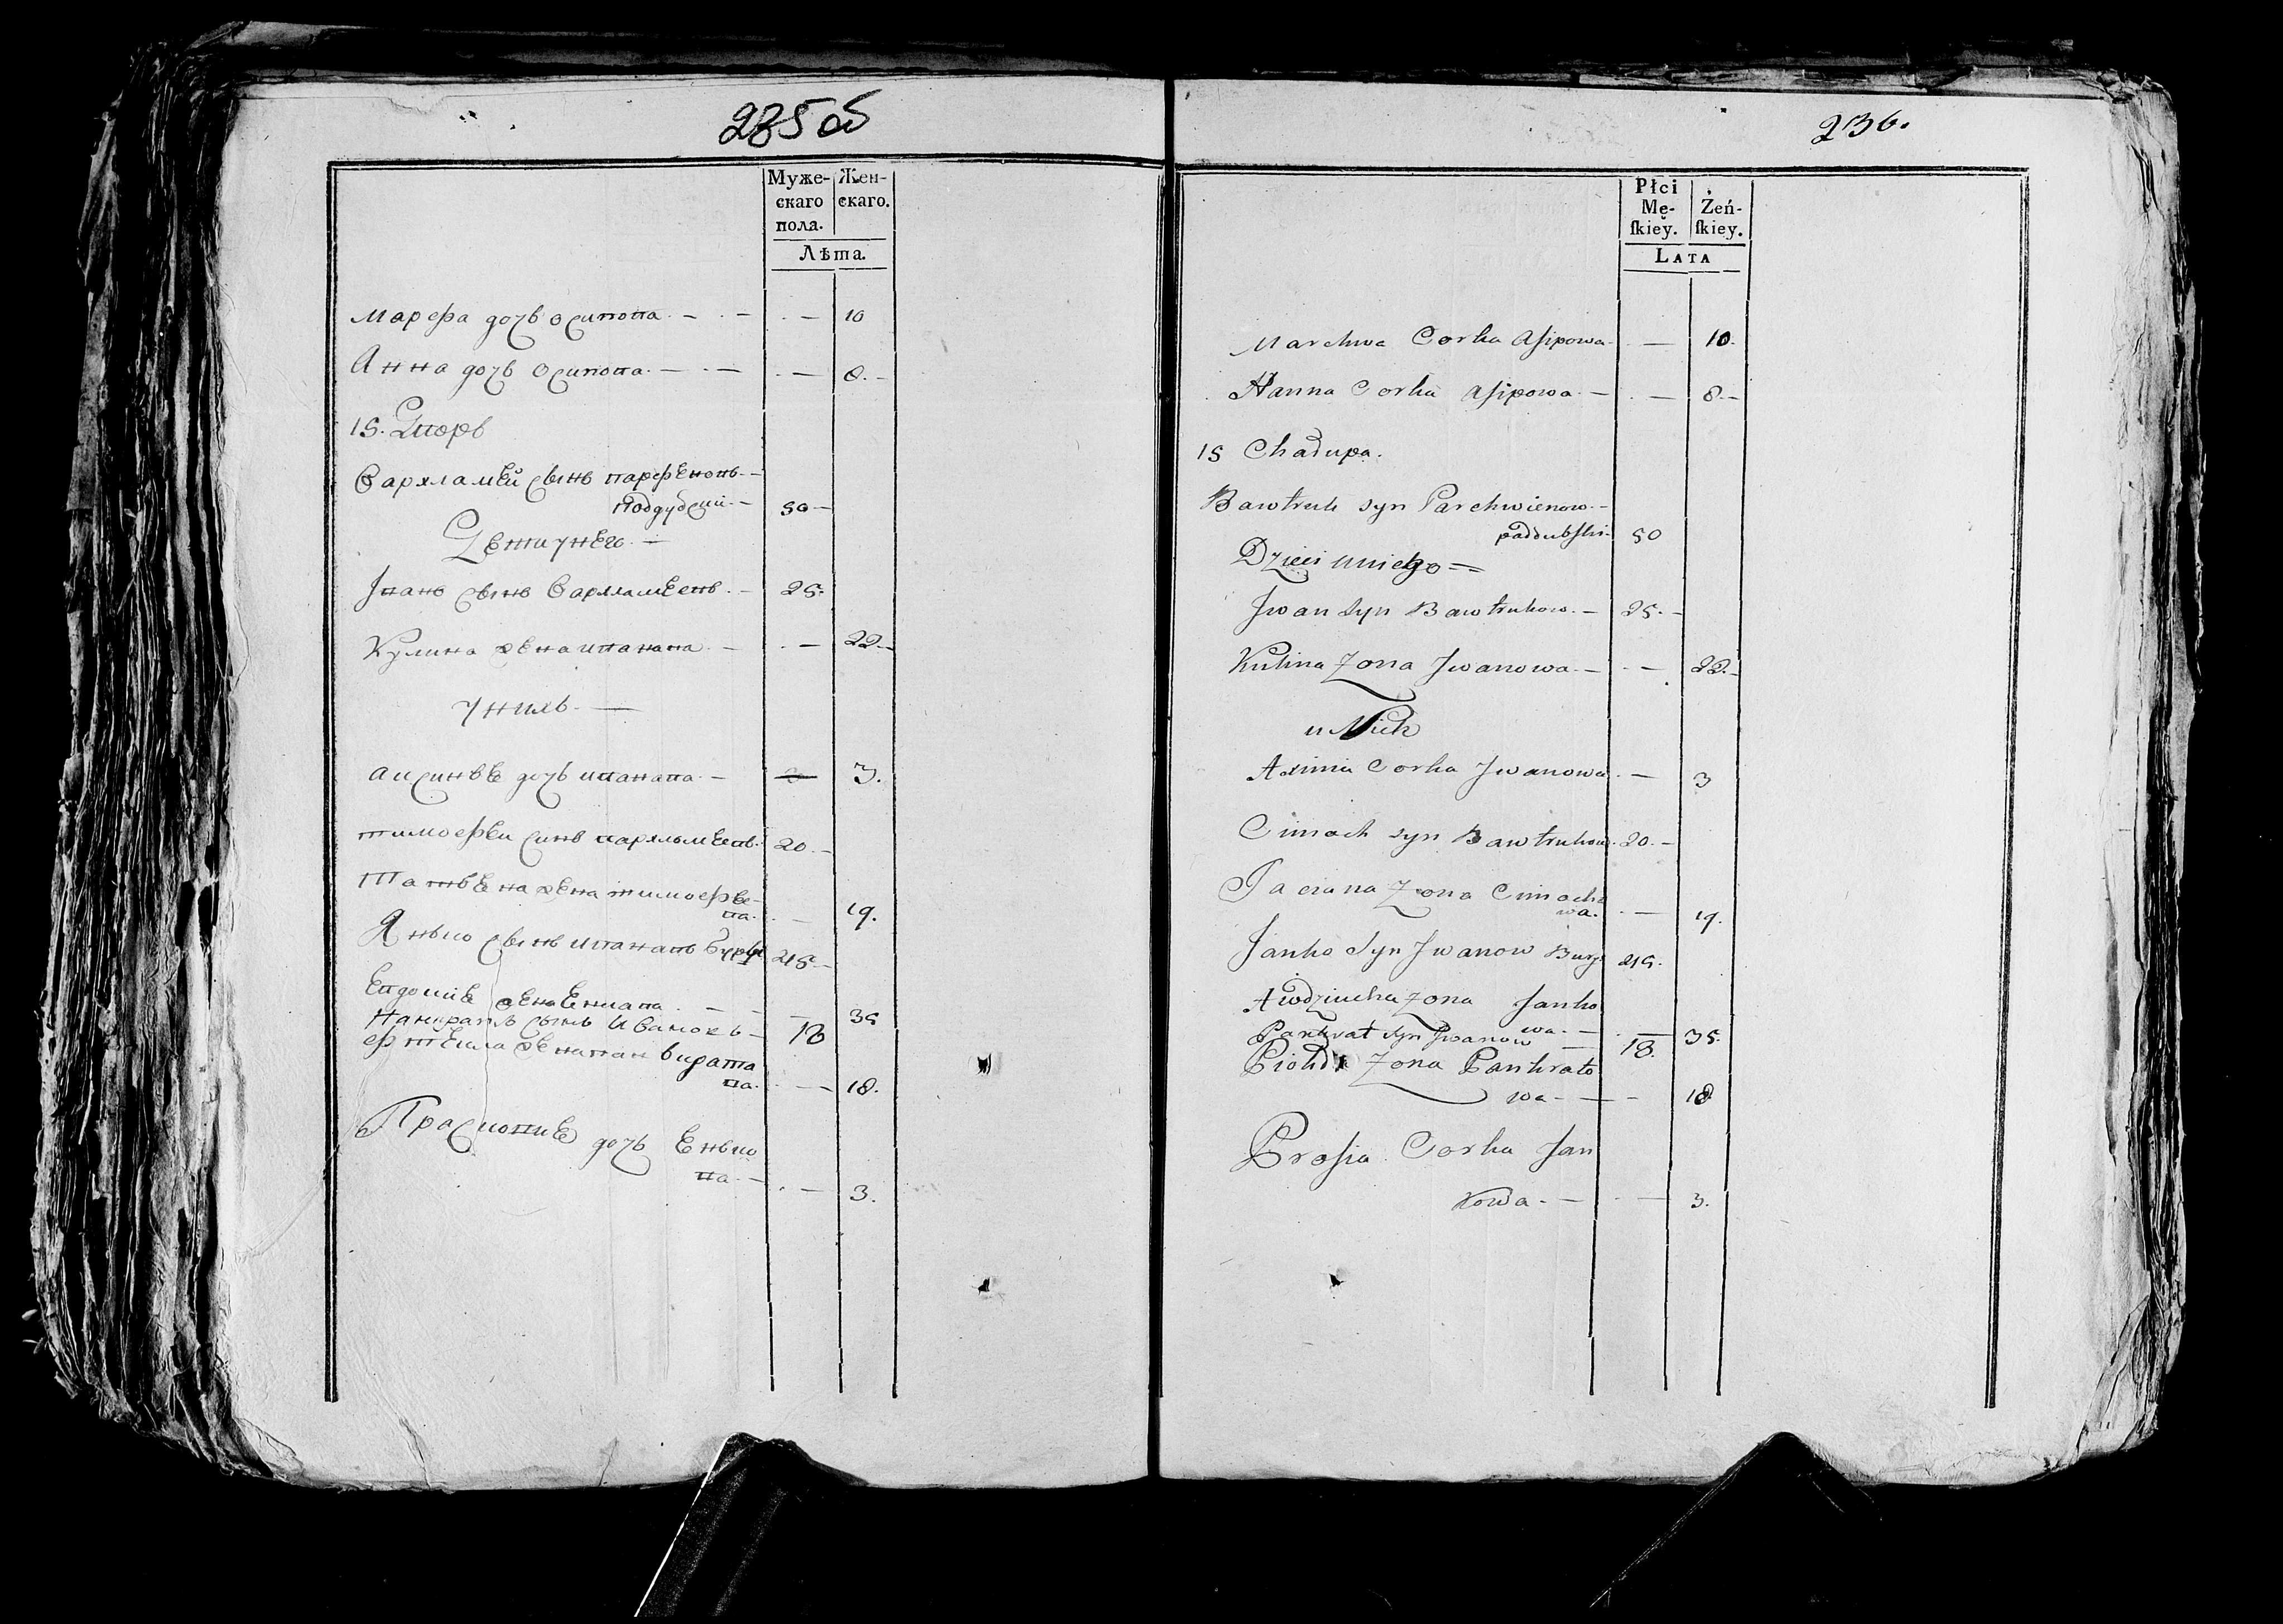 235об
Муже-
скаго
пола.
Жен-
скаго.
Лѣта.
Марефа дочь Осипова 10
Анна дочь Осипова 8
15. Дворъ
Варламей сынъ парфеновъ
Поддубски 50
Дети унего
Іванъ сынъ Варламеевъ 25
Кулина жена иванава 22
унихъ
аксинье дочь иванава 3.
тимофеи синъ варламеевъ 20
Татьена жена тимофее-
ва. 19.
Янько сынъ иванавъ 45
Евдокие жена Енкава 35
Панкратъ сынъ Ивановъ 18
жена панкрата
ва. 18.
Прасковие дочь Енько
ва. 3.
236.
Płci
Mę-
ſkiey.
Żeń-
ſkiey.
LATA
Marchwa Corka Asipowa 10
Hanna Corka Asipowa 8
15 Chadupa.
Bawtruk syn Parchwienow
paddubski 50
Dzieci uniego
Jwan Syn Bawtrukow 25
Kulina Zona Jwanowa 22
u Nich
Axinia Corka Jwanowa 3
Cimoch syn Bawtrukow 20
Taciana Zona Cimocho
wa. 19.
Janko Syn Jwanow 45
Awdziucha Zona Janko
wa 35
Pankrat syn Jwanow 18.
Zona Pankrato
wa 18
Prosia Corka Jan
kowa 3.